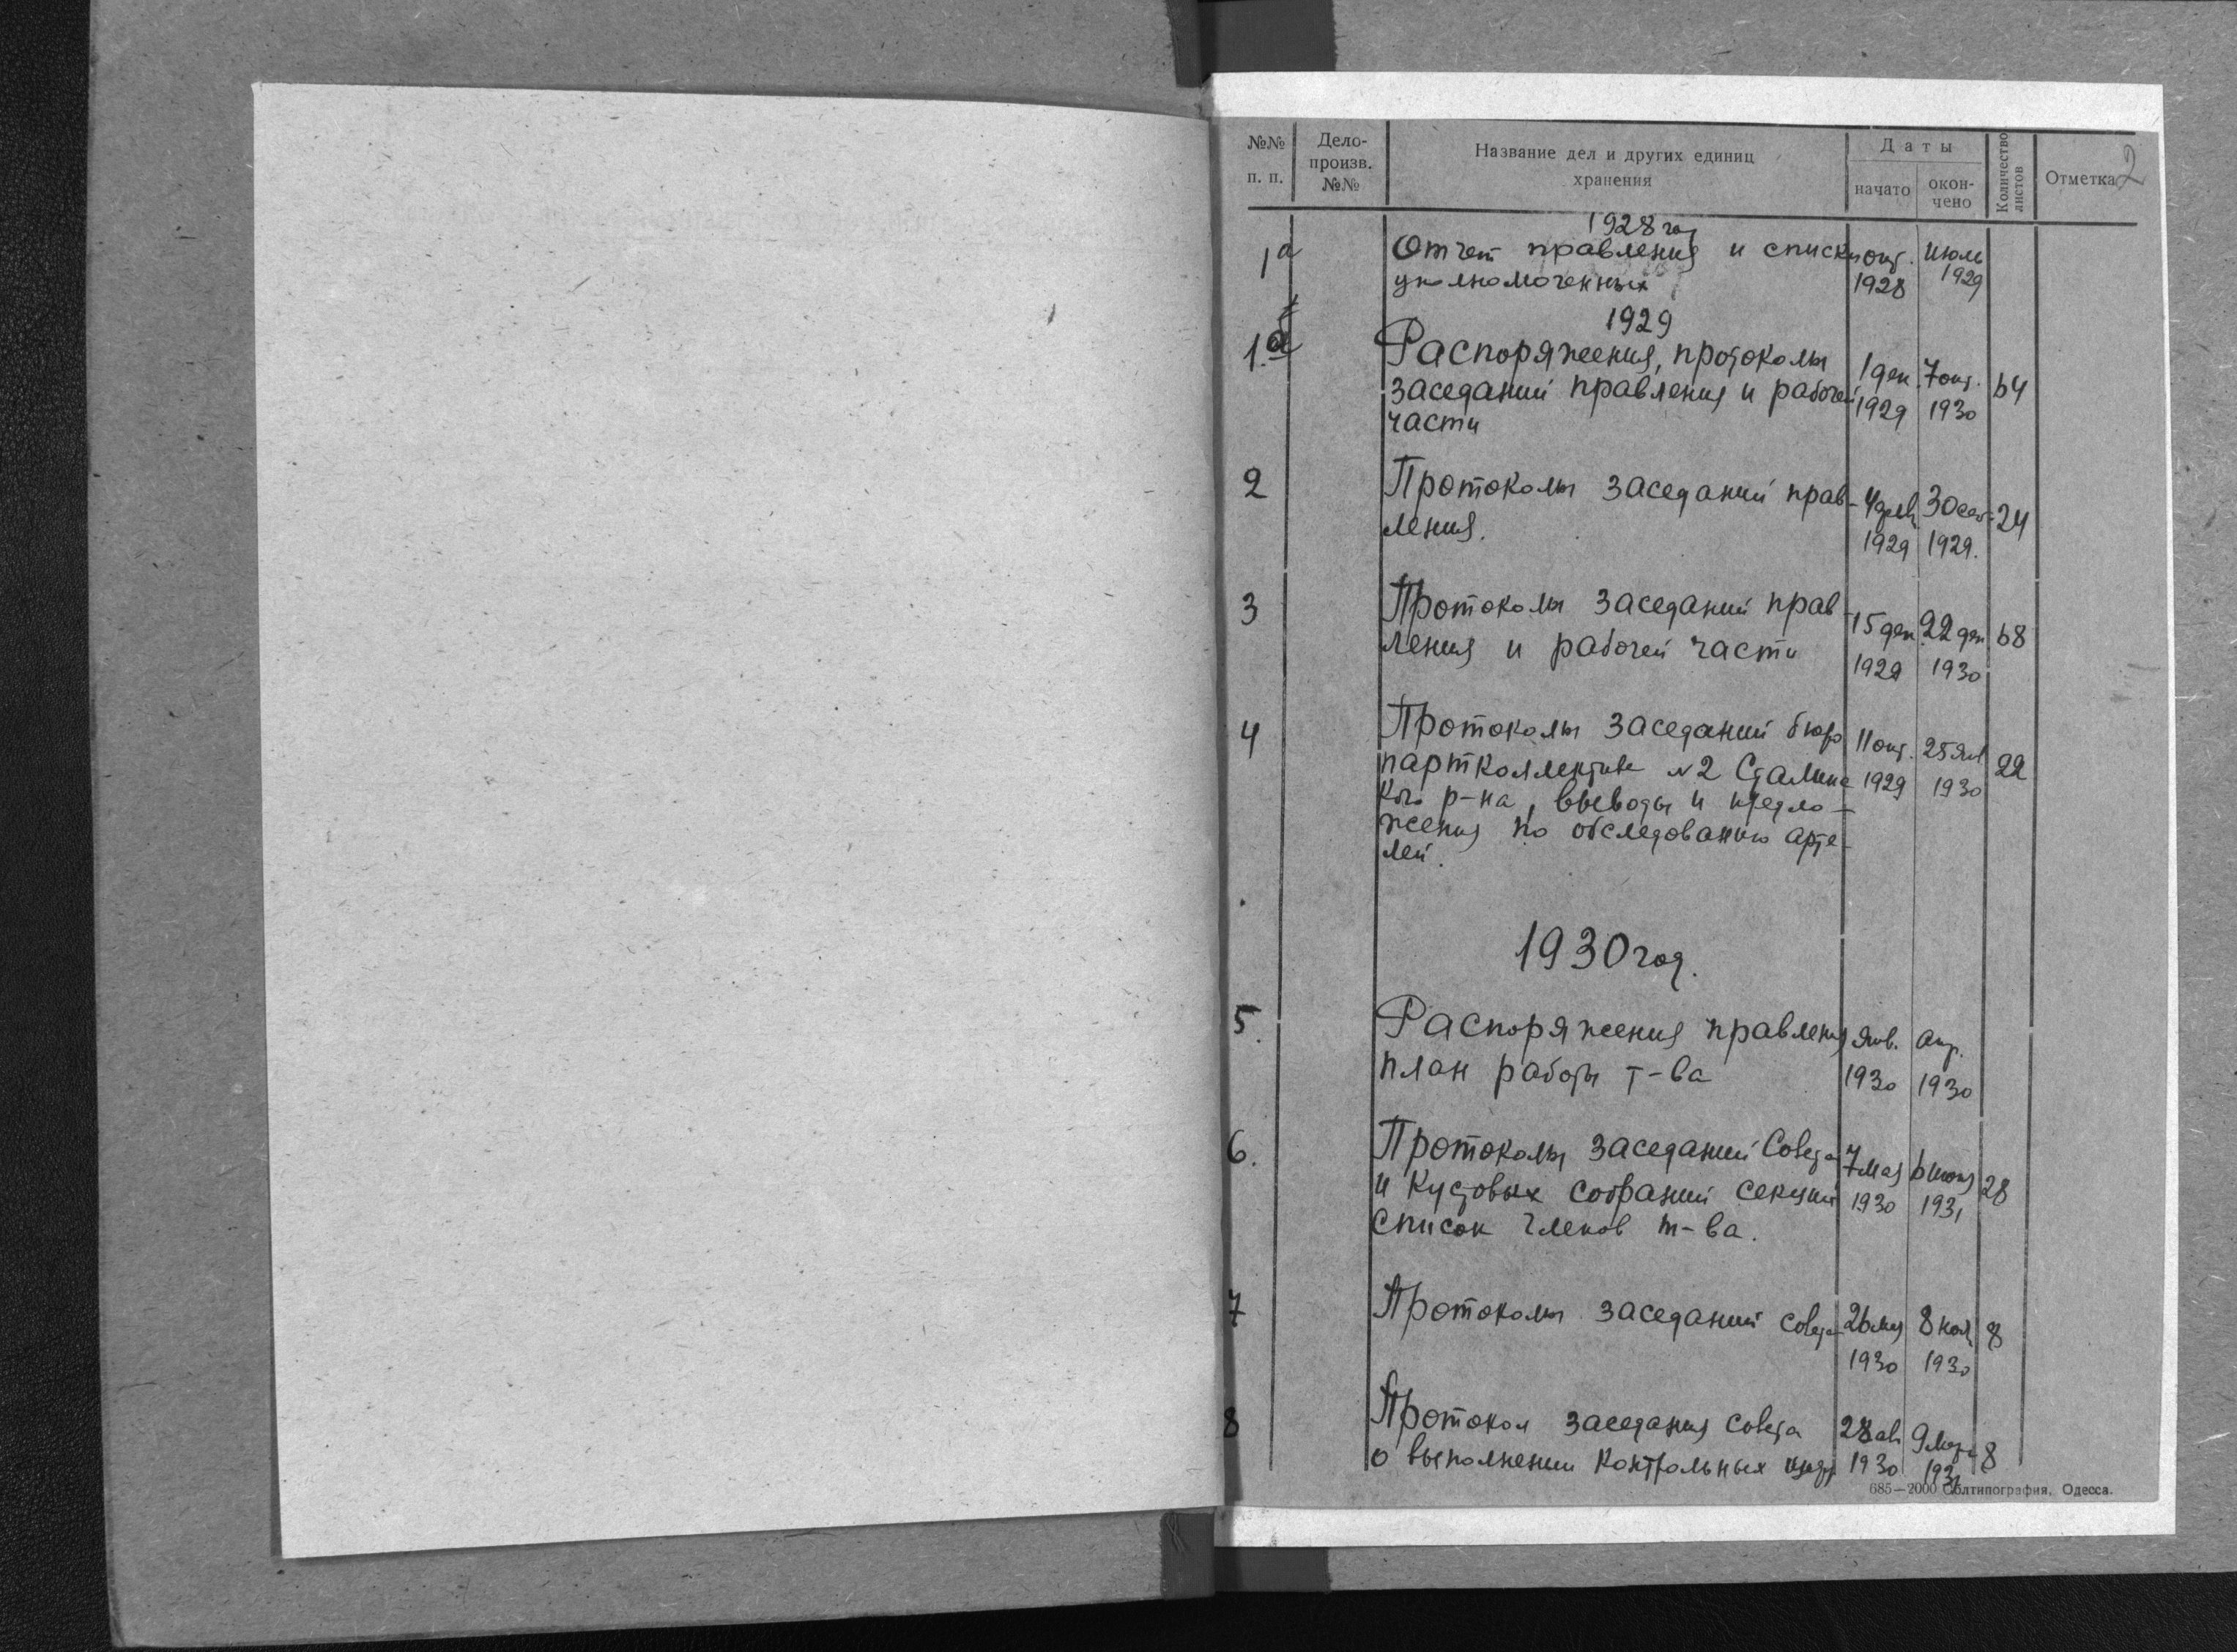 №№ п. п. Дело-произв. №№ Название дел и других единиц хранения Даты начато окон-чено Количество листов Отметка 2
1928 год
1а Отчет правления и списки окт. июль
уполномоченных 1928 1929
1929
1 Распоряжения, протоколы 1 дек 7 окт.
заседаний правления и рабочей 1929 1930 64
части
2 Протоколы заседаний прав- 30 сен 24
ления. 1929 1929.
3 Протоколы заседаний прав- 15 дек 22 дек 68
ления и рабочей части 1929 1930
4 Протоколы заседаний бюро 11 окт. 25 янв 22
партколлектива №2 Сталинс 1929 1930
кого р-на, выводы и предло-
жения по обследованию арте-
лей.
1930 год.
5. Распоряжения правления янв. апр.
план работы т-ва 1930 1930
6. Протоколы заседаний Совета 7 мая 6 июня 28
и кустовых собраний секций 1930 1931
список членов т-ва.
7 Протоколы заседаний совета 26 мая 8 ноя 8
1930 1930
8 Протокол заседания совета 28 ав 9 мар 8
о выполнении контрольных цифр 1930 1931
685—2000 Облтипография, Одесса.